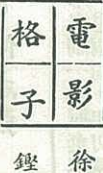 電影
格子
徐
鏗